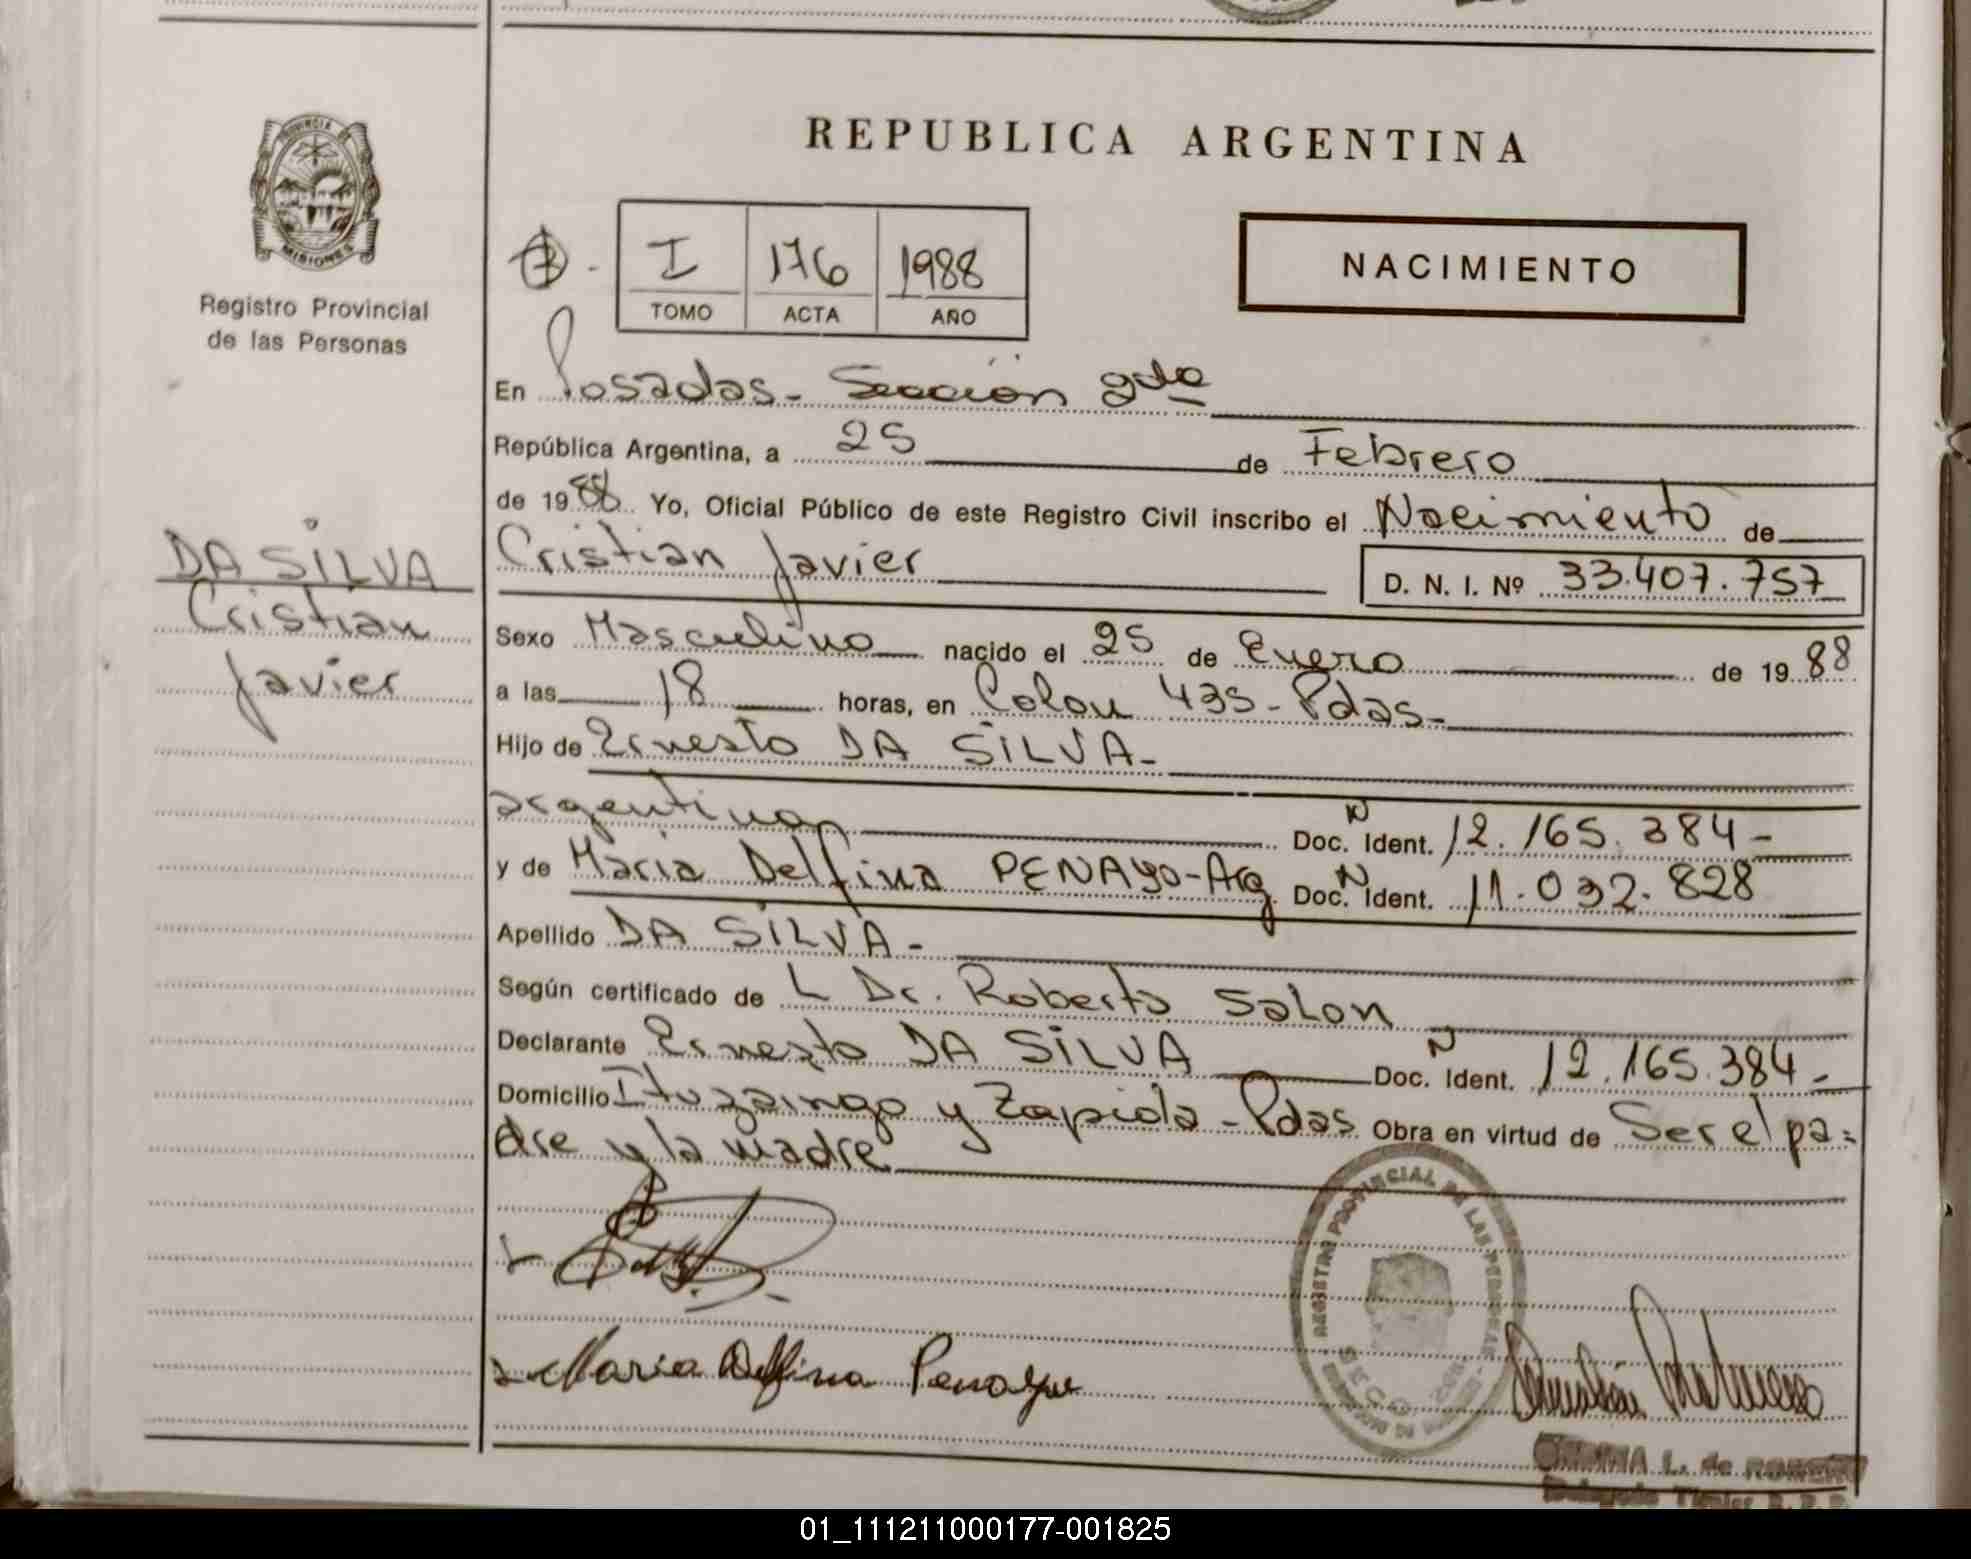 REPUBLICA ARGENTINA
PROVINCIA DE
MISIONES
Registro Provincial
de las Personas
I 176 1988
TOMO ACTA AÑO
NACIMIENTO
En Posadas - Sección 2da
República Argentina, a 25 de Febrero
de 1988 Yo, Oficial Público de este Registro Civil inscribo el Nacimiento de
DA SILVA
Cristian
Javier
Cristian Javier D. N. I. Nº 33.407.757
Sexo Masculino nacido el 25 de Enero de 1988
a las 18 horas, en Colon 435 - Pdas -
Hijo de Ernesto DA SILVA -
argentino Doc. N Ident. 12.165.384 -
y de Maria Delfina PENAYO - Arg Doc. N Ident. 11.032.828
Apellido DA SILVA -
Según certificado de L Dr. Roberto Salon
Declarante Ernesto DA SILVA Doc. N Ident. 12.165.384 -
Domicilio Ituzaingo y Zapiola - Pdas Obra en virtud de Ser el pa=
dre y la madre
Maria Delfina Penayo
REGISTRO PROVINCIAL DE LAS PERSONAS
L. de
01_111211000177-001825